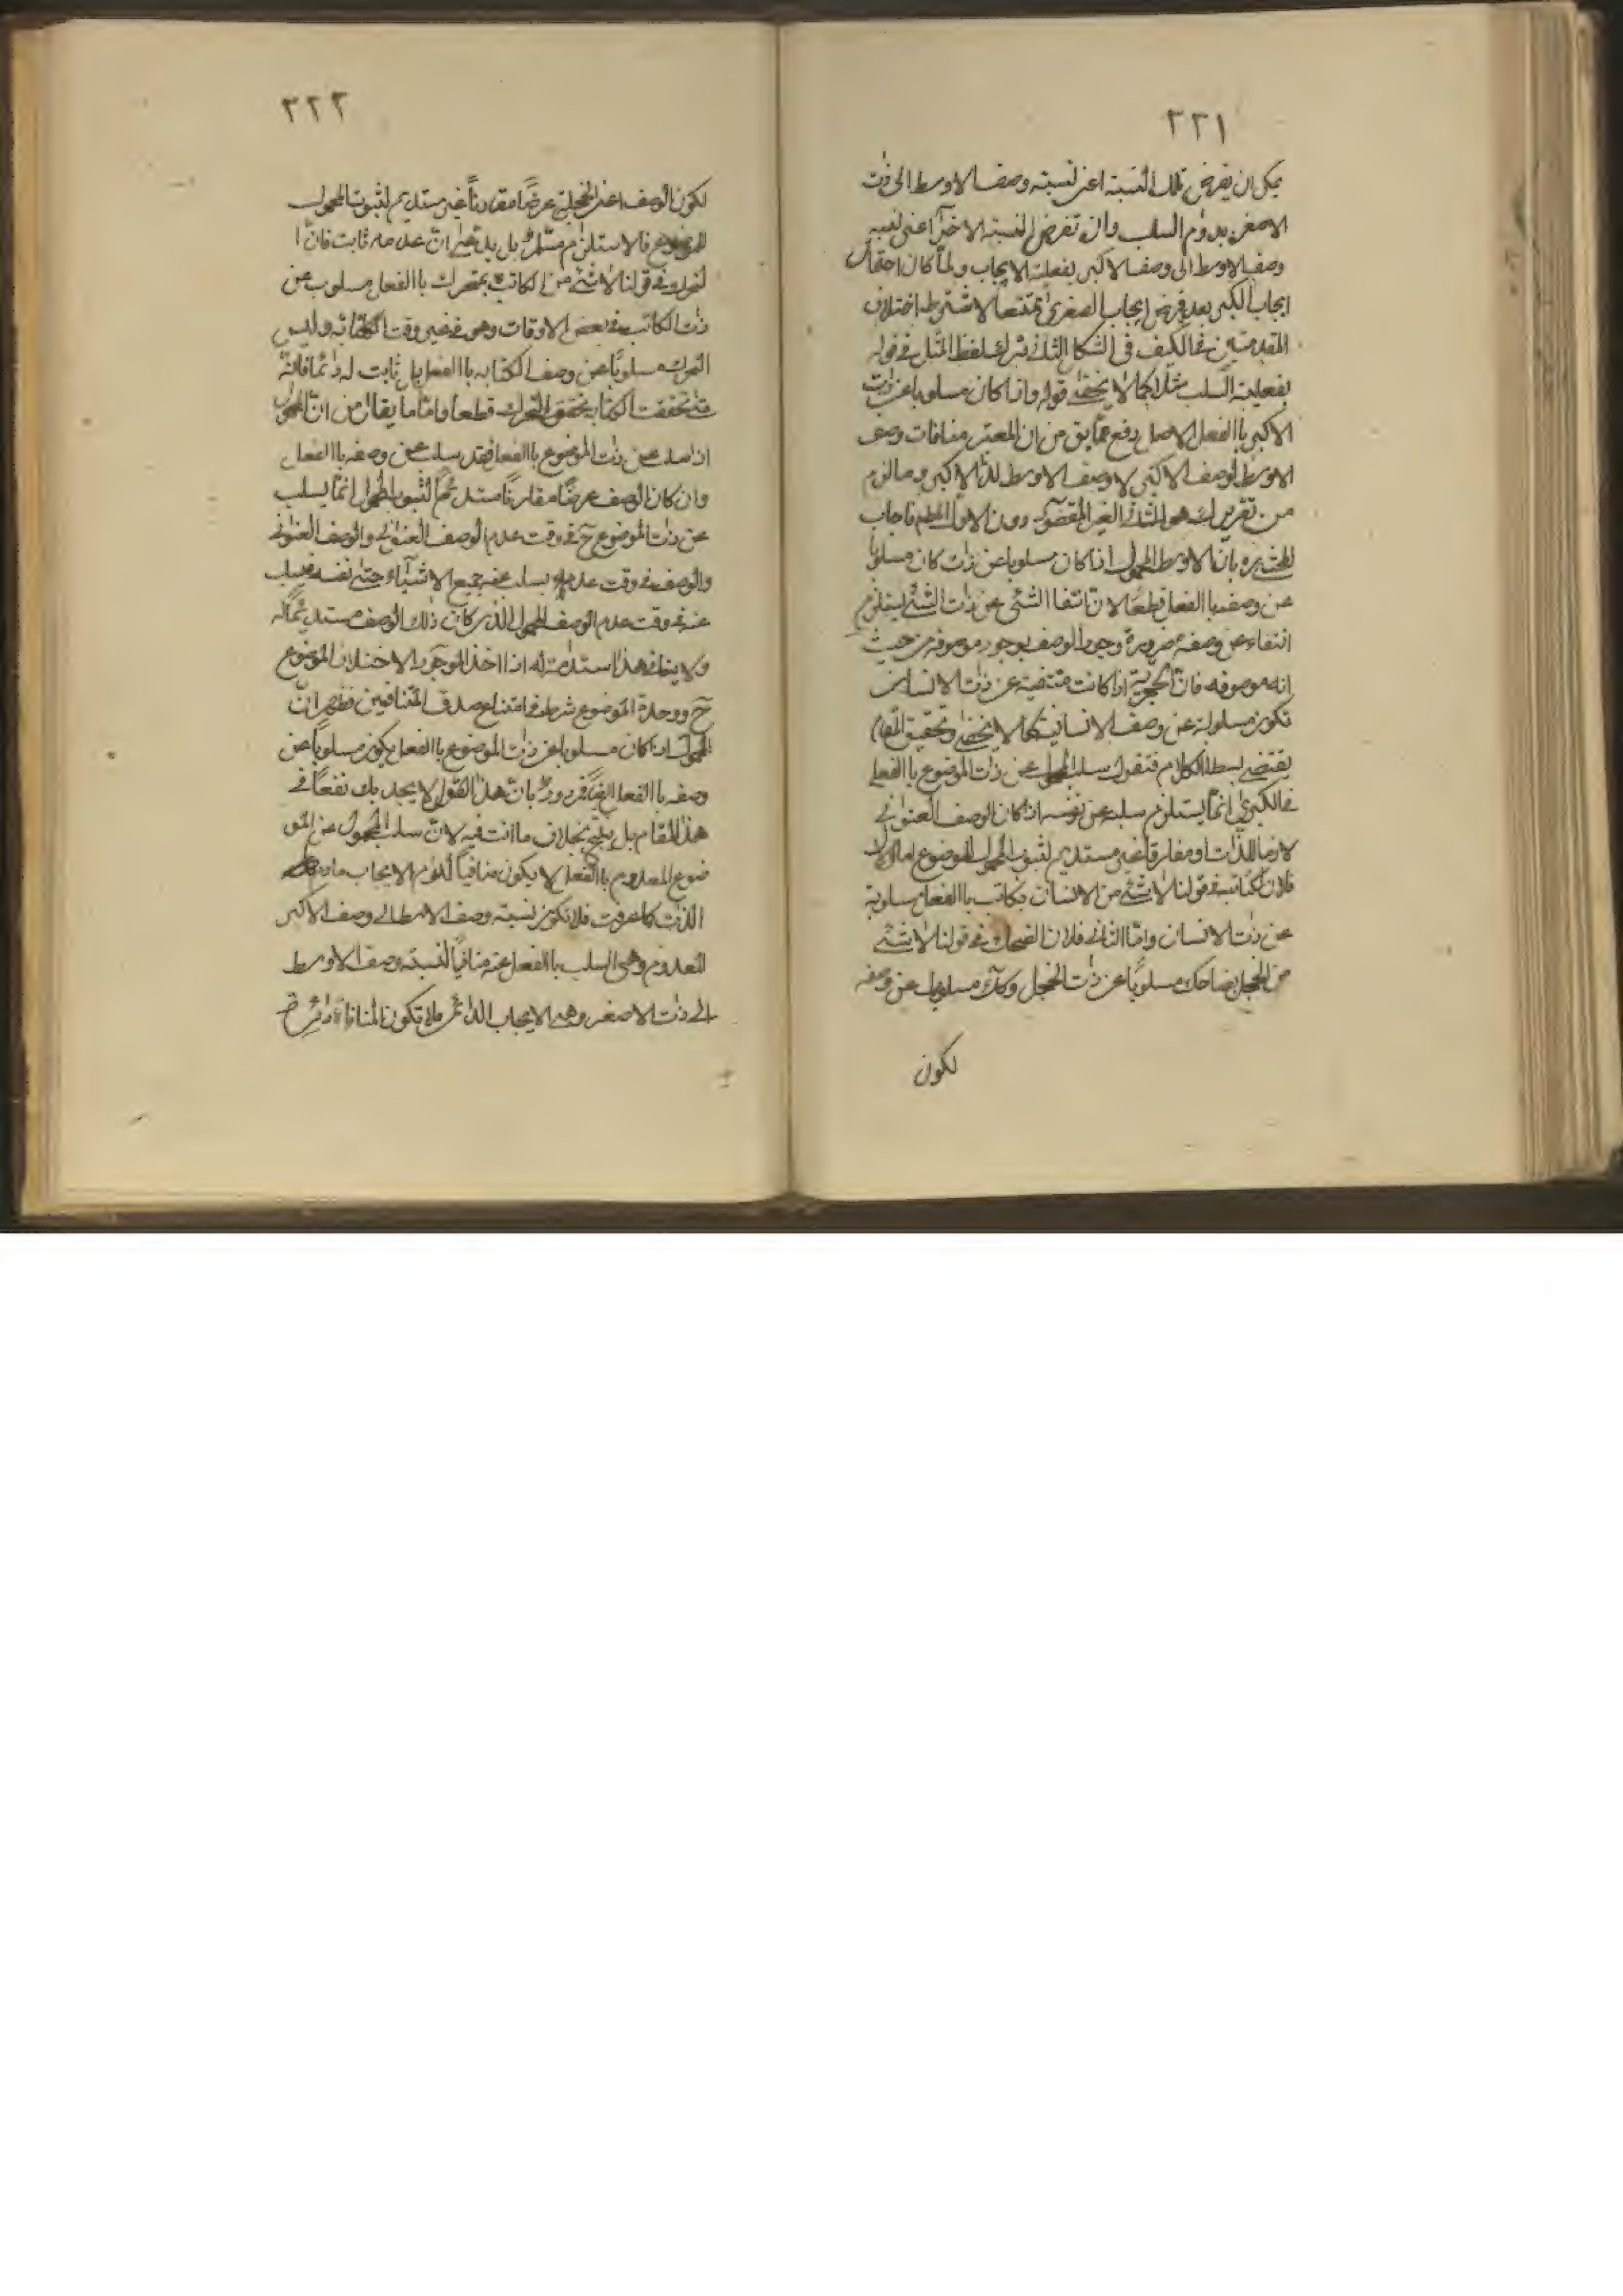 ٢٢١
يمكن ان يفرض تلك النسبة اعنى نسبته وصف الاوسط الى ذات
الاصغر بدوام السلب وان تفرض النسبة الاخرى اعنى نسبة
وصف الاوسط الى وصف الاكبر بفعلية الايجاب ولما كان احتمال
ايجاب الكبرى بعد فرض ايجاب الصغرى ممتنعا لاشتراط اختلاف
المقدمتين فى الكيف فى الشكل الثانى ترك لفظ المثل فى قوله
بفعلية السلب مثلا كما لا يخفى قوله واذا كان مسلوبا عن ذات
الاكبر باالفعل الاصل دفع من ان المعتبر منافات وصف
الاوسط لوصف الاكبر لا وصف الاوسط لذات الاكبر وما لزم
من تقريرك هو الثانى الغير المقصود دون الاول فاجاب
بان الاوسط المحمول اذا كان مسلوبا عن ذات كان مسلوبا
عن وصفه باالفعل قطعا لان انتفا الشئ عن ذات الشئ يستلزم
انتفاءه عن وصفه ضرورة وجود الوصف بوجود موصوفه من حيث
انه موصوفه فان الحجرية اذا كانت منتفية عن ذات الانسان
تكون مسلوبة عن وصف الانسانية كما لا يخفى وتحقيق المقام
يقتضى بسط الكلام فنقول سلب المحمول عن ذات الموضوع باالفعل
فى الكبرى انما يستلزم سلبه عن وصفه اذا كان الوصف العنوانى
لازما للذات او مفارقا غير مستديم لثبوت المحمول للموضوع اما الاول
فلان الكاتب فى قولنا لا شئ من الانسان بكاتب باالفعل مسلوبة
عن ذات الانسان واما الثانى فلان الضحك فى قولنا لا شئ
من الخجل بضاحك مسلوبا عن ذات الخجل وكك مسلوبا عن وصفه
لكون
٢٢٢
لكون الوصف اعنى الخجلية عرضا مفارقا غير مستديم لثبوت المحمول
للموضوع فالاستلزام مسلم بل بديهى ان عدمه ثابت فان
التحرك فى قولنا لا شئ من الكاتب بمتحرك باالفعل مسلوب عن
ذات الكاتب فى بعض الاوقات وهى فى غير وقت الكتابة وليس
التحرك مسلوبا عن وصف الكتابه باالفعل بل ثابت له دائما فانه
متى تحققت الكتابة يتحقق التحرك قطعا واما ما يقال من ان المحمول
اذا سلب عن ذات الموضوع باالفعل فقد سلب عن وصفه باالفعل
وان كان الوصف عرضا مفارقا مستديما لثبوت المحمول انما يسلب
عن ذات الموضوع ح فى وقت عدم الوصف العنوانى والوصف العنوانى
والوصف فى وقت عدمه يسلب عنه جميع الاشياء حتى نفسه فيسلب
عنه فى وقت عدم الوصف المحمول الذى كان ذلك الوصف مستديما له
ولا ينافى هذا استدامته له اذا اخذ الموجود لاختلاف الموضوع
ح ووحدة الموضوع شرط فى امتناع صدق المتنافيين فظهر ان
المحمول اذا كان مسلوبا عن ذات الموضوع باالفعل يكون مسلوبا عن
وصفه باالفعل ايضا فمردود بان هذا القول لا يجديك نفعا فى
هذا المقام بل ينتج بخلاف ما انت فيه لان سلب المحمول عن المو
ضوع المعدوم باالفعل لا يكون منافيا لدوام الايجاب مادام
الذات كما عرفت فلا تكون نسبة وصف الاوسط الى وصف الاكبر
المعدوم وهى السلب باالفعل عنه منافيا لنسبته وصف الاوسط
الى ذات الاصغر وهى الايجاب الدائمى فلا تكون المنافاة